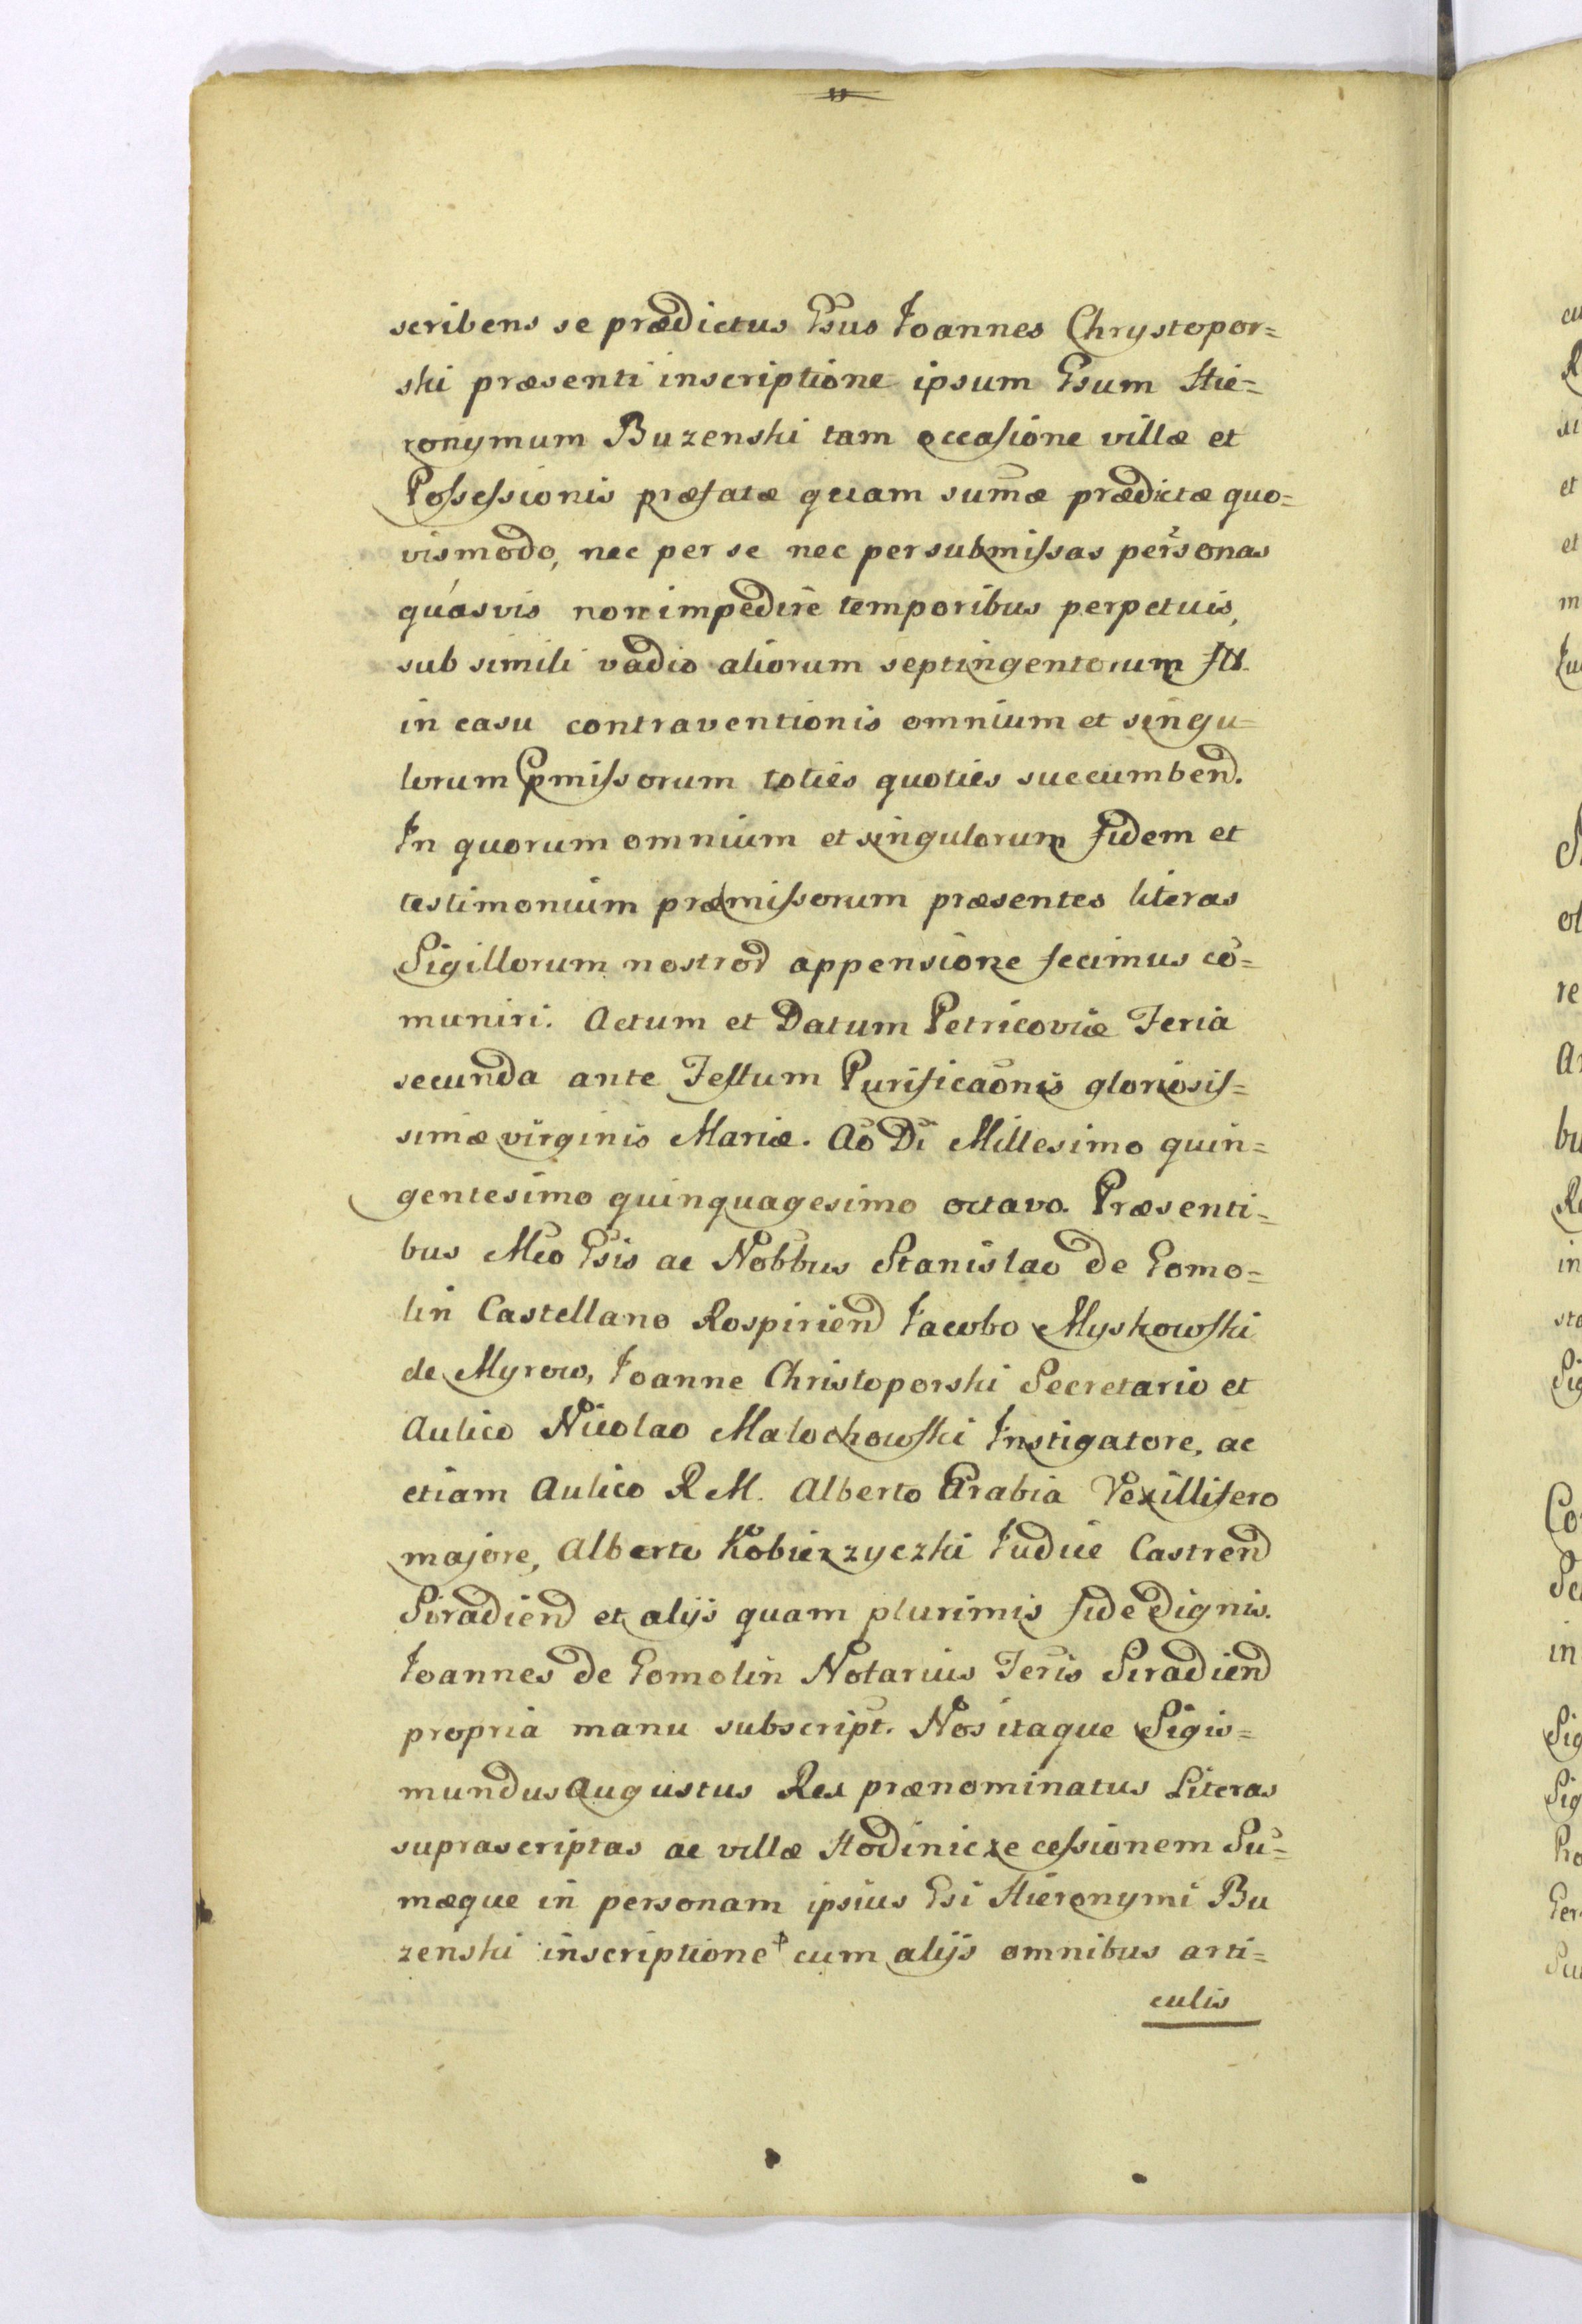 scribens se prædictus Gsus Joannes Chrystopor=
ski præsenti inscriptione ipsum Gsum Hie=
ronymum Buzenski tam occasione villæ et
Possessionis præfatæ quam sum̄æ prædictæ quo=
vismodo, nec per se nec per submissas personas
quasvis non impedire temporibus perpetuis,
sub simili vadio aliorum septingentorum fll.
in casu contraventionis omnium et singu=
lorum pmissorum toties quoties succumbend.
In quorum omnium et singulorum fidem et
testimonium præmissorum præsentes literas
Sigillorum nostrod appensione fecimus cō=
muniri. Actum et Datum Petricoviæ Feria
secunda ante Festum Purificaōnis gloriosis=
simæ virginis Mariæ. Aō Di Millesimo quin=
gentesimo quinquagesimo octavo. Præsenti=
bus Mco Gsis ac Nobbus Stanislao de Gomo=
lin Castellano Rospiriend Jacobo Myskowski
de Myrow, Joanne Christoporski Secretario et
Aulico Nicolao Malochowski Instigatore, ac
etiam Aulico R M. Alberto Grabia Vexillifero
majore, Alberto Kobierzyczki Judice Castrend
Siradiend et alijs quam plurimis fide dignis.
Joannes de Gomolin Notarius Teris Siradiend
propria manu subscript. Nos itaque Sigis=
mundus Augustus Rex prænominatus Literas
suprascriptas ac villæ Hodinicze cessionem Su=
mæque in personam ipsius Gsi Hieronymi Bu
zenski inscriptione cum alijs omnibus arti=
culis